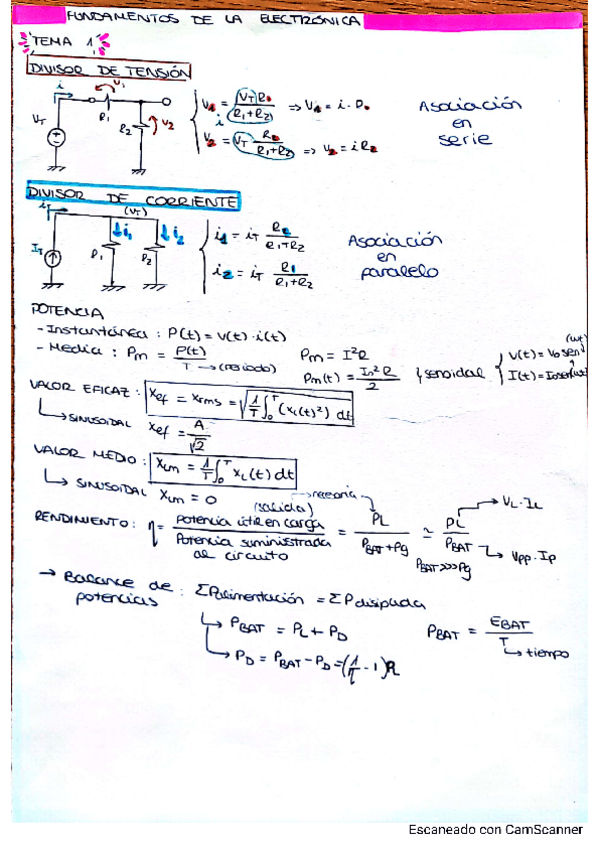 FUNDAMENTOS DE LA ELECTRÓNICA
TEMA 1
DIVISOR DE TENSIÓN
i V₁ R₁ R₂ V₂ V_T
V₁ = V_T R₁ / (R₁+R₂) => V₁ = i · R₁
i
V₂ = V_T R₂ / (R₁+R₂) => V₂ = i R₂
Asociación
en
serie
DIVISOR DE CORRIENTE
i_T (V_T) I_T i₁ i₂ R₁ R₂
i₁ = i_T R₂ / (R₁+R₂)
i₂ = i_T R₁ / (R₁+R₂)
Asociación
en
paralelo
POTENCIA
- Instantánea : P(t) = V(t) · i(t)
- Media : Pm = P(t) / T → (periodo) Pm = I²R
Pm(t) = Im² R / 2 senoidal { V(t) = Vo sen (wt)
I(t) = Io sen (wt)
VALOR EFICAZ : Xef = Xrms = √(1/T ∫₀ᵀ (x_L(t)²) dt)
↳ SINUSOIDAL Xef = A / √2
VALOR MEDIO : Xm = 1/T ∫₀ᵀ x_L(t) dt
↳ SINUSOIDAL Xm = 0
RENDIMIENTO : η = Potencia útil en carga (salida) / Potencia suministrada al circuito = PL / (P_BAT + Pg) ≃ PL / P_BAT
→ V_L · I_L
↳ Vpp · Ip
P_BAT >>> Pg
→ Balance de potencias : ΣP alimentación = ΣP disipada
↳ P_BAT = P_L + P_D
↳ P_D = P_BAT - P_D = (1/η - 1)
P_BAT = E_BAT / T → tiempo
Escaneado con CamScanner